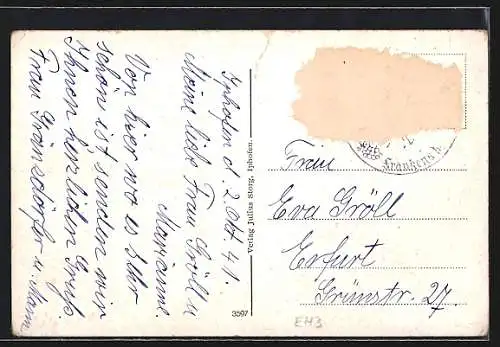 Iphofen d. 2. Okt. 41.
Meine liebe Frau Gröll u
Marianne
Von hier wo es sehr
schön ist senden wir
Ihnen herzlichen Gruß
Frau u. Mann
Verlag Julius Storg, Iphofen.
3597
Frau
Eva Gröll
Erfurt
Grünstr. 27.
EH3